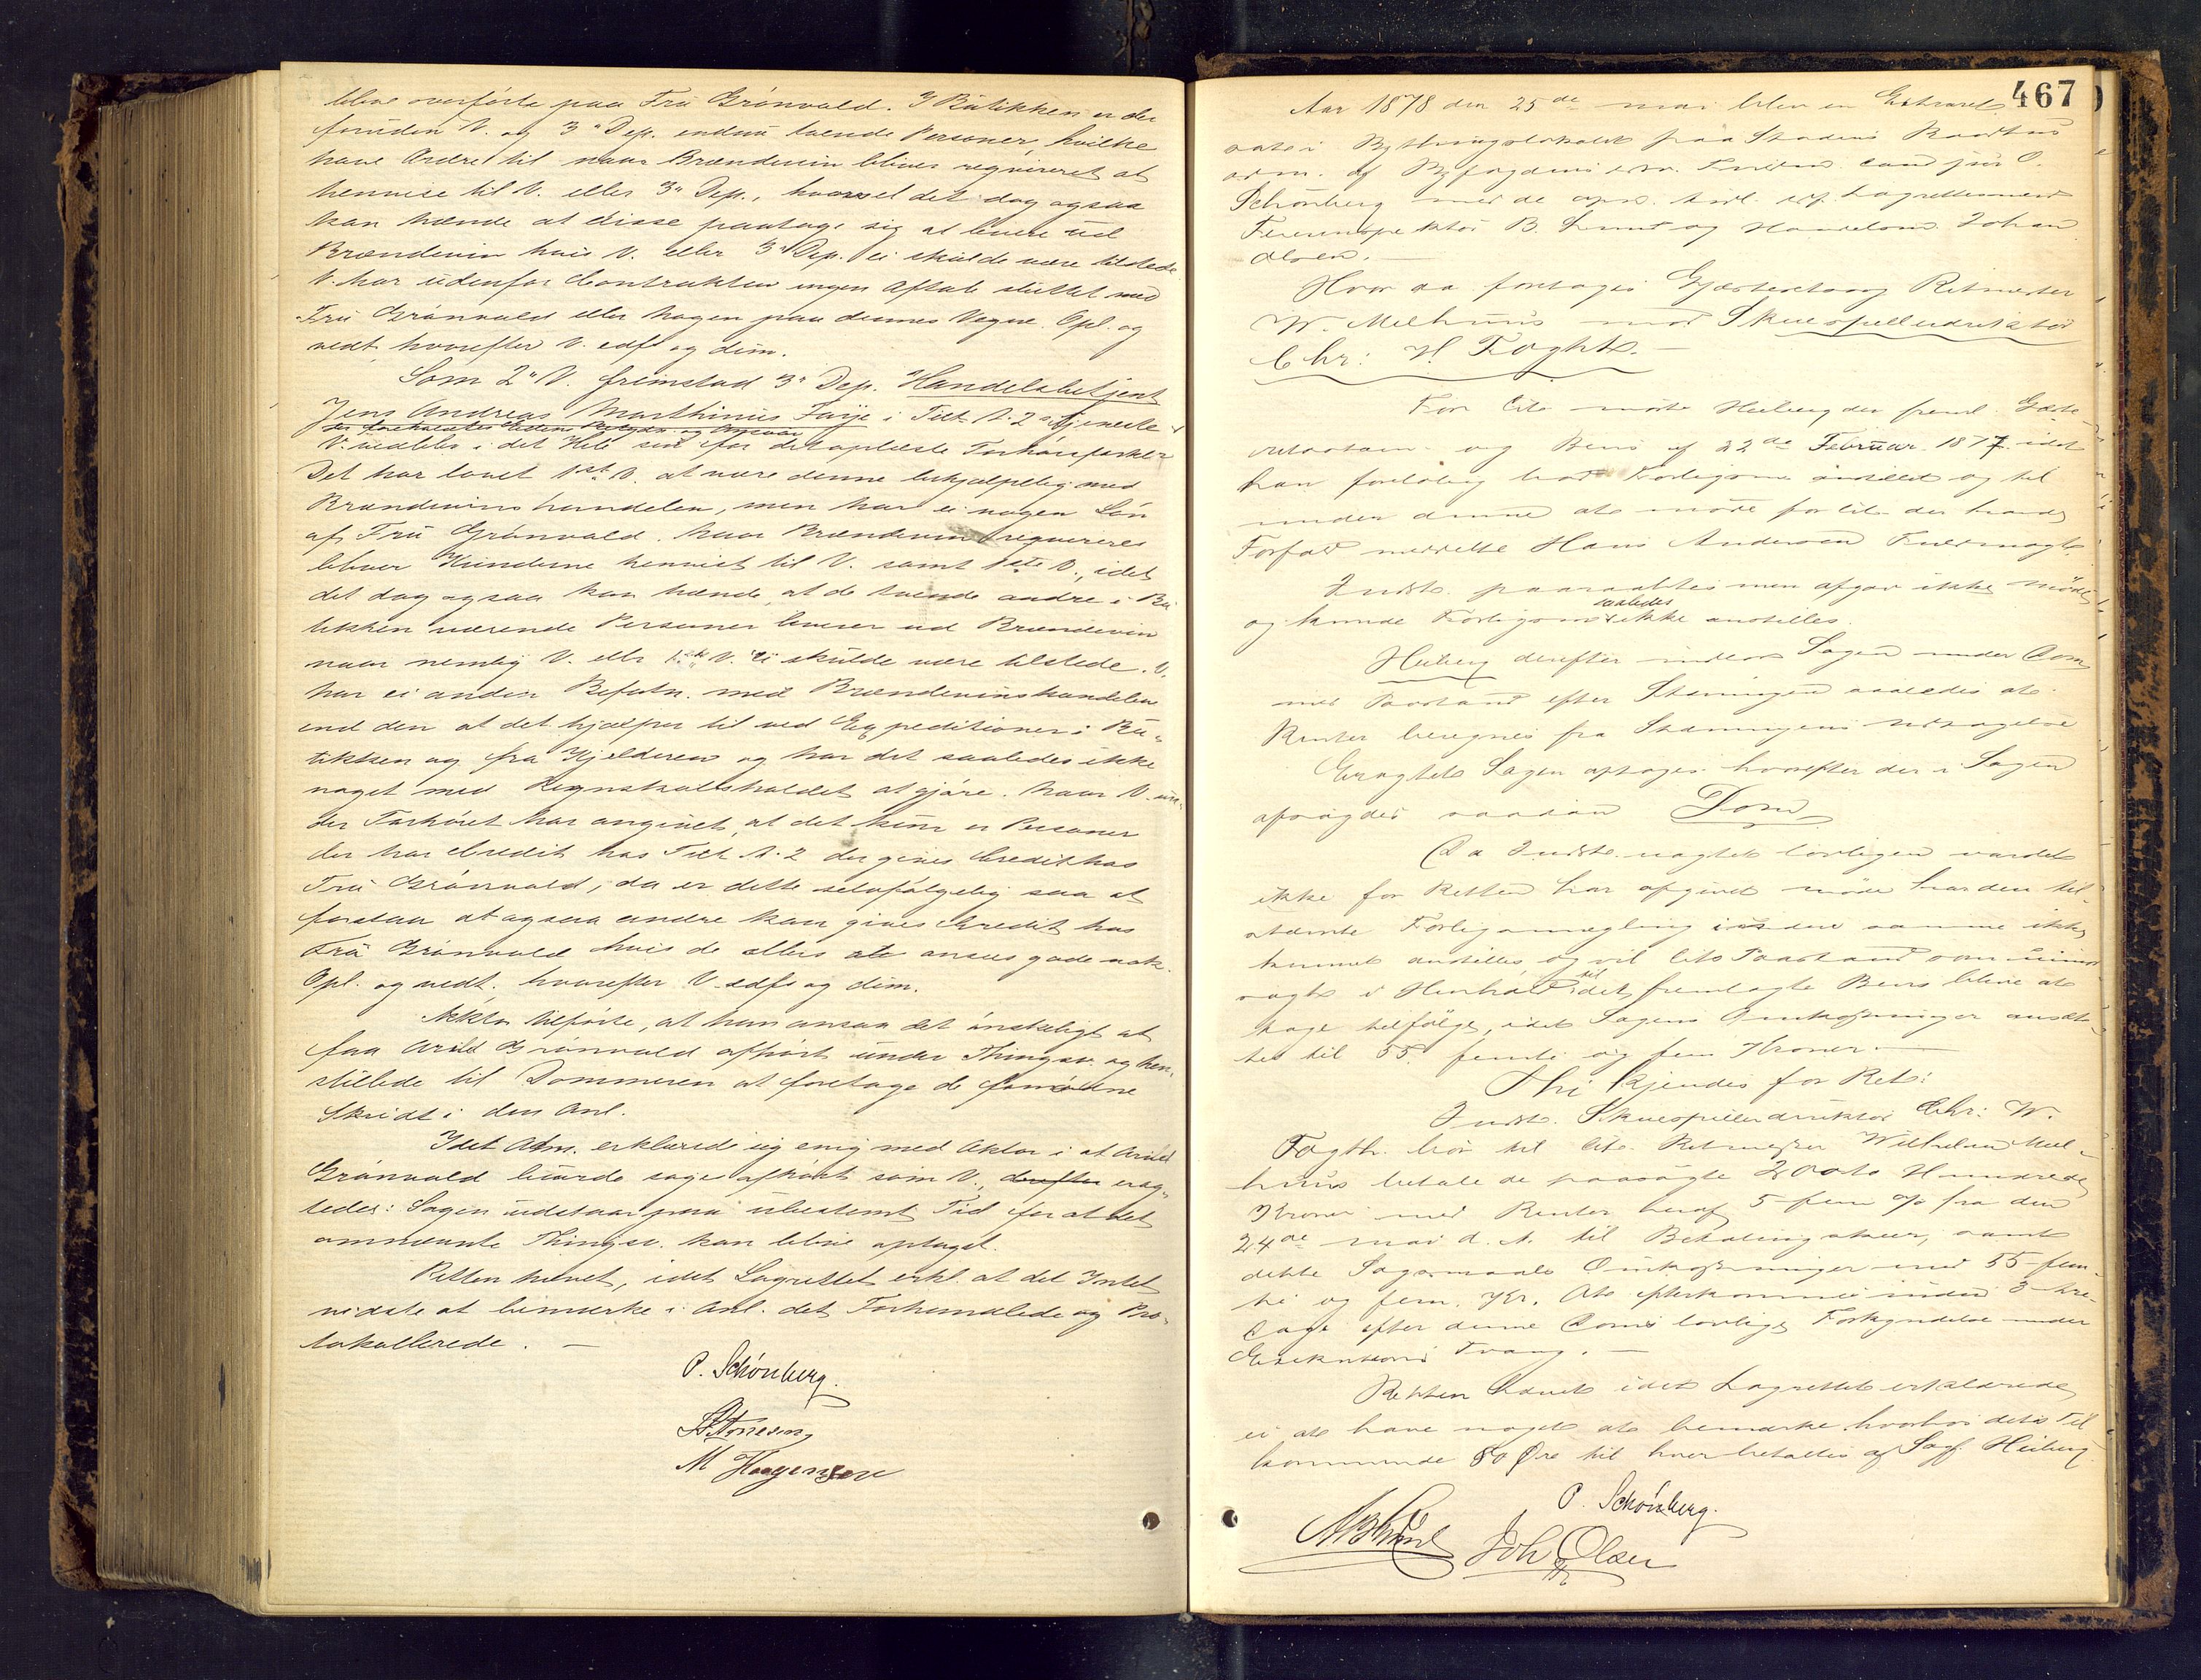 blive overførte paa Fru Grønvold. I Butikken er der
foruden V. og 3" Dep. endnu toende Personer, hvilke
have Ordre til naar Brændeviin bliver reqvireret at
henvise til V. eller 3" Dep., hvorvel det dog ogsaa
kan hænde at disse paatage sig at levere ud
Brændeviin hvis V. eller 3" Dep. ei skulde være tilstede
V. har udenfor Contrakten ingen Aftale sluttet med
Fru Grønvold eller Nogen paa dennes Vegne. Opl. og
vedt. hvorefter V. edf. og dim.
Som 2" V. fremstod 3" Dep. Handelsbetjent
Jens Andreas Marthinius Faye i Tilt. N. 2 s Tjeneste
der foreholdtes Edens Betydn. og Ansvar
V. vedblev i det Hele sin for det oplæste Forhørsforkl.
Det har lovet 1ste V. at være denne behjælpelig med
Brændeviinshandelen, men har ei nogen Løn
af Fru Grønvold. Naar Brændeviin reqvireres
bliver Kunderne henvist til V. samt 1ste V., idet
det dog ogsaa kan hænde, at de tuende andre i Bu
tikken værende Personer leverer ud Brændeviin
naar nemlig V. eller 1ste V. ei skulde være tilstede. V.
har ei anden Befatn. med Brændeviinshandelen
end den at det hjælper til ved Expeditionen i Bu-
tikken og fra Kjelderen og har det saaledes ikke
noget med Regnskabsholdet at gjøre. Naar V. un-
der Forhøret har angivet, at det kun er Personer
der har Credit hos Tilt. N. 2 der gives Credit hos
Fru Grønvold, da er dette selvfølgelig saa at
forstaa at ogsaa andre kan gives Credit hos
Fru Grønvold hvis de ellers ansees gode nok.
Opl. og vedt. hvorefter V. edf. og dim.
Aktor tilførte, at han ansaa det ønskeligt at
faa Arild Grønvold afhørt under Thingsv. og hen-
stillede til Dommeren at foretage de fornødne
Skridt i den Anl.
Idet Adm. erklærede sig enig med Aktor i at Arild
Grønvold burde søges afhørt som V., derefter erag-
tedes: Sagen udstaar paa ubestemt Tid for at det
omnævnte Thingsv. kan blive optaget.
Retten hævet, idet Lagrettet erkl. at det Intet
vidste at bemærke i Anl. det Forhandlede og Pro-
tokollerede. —
O. Schønberg.
M Haagensen
467
Aar 1878 den 25de mai blev en Extraret
sat i Bythingslokalet paa Stadens Raadhus
adm. af Byfogdens edsv. Fuldm. cand jur O.
Schønberg med de opn. tidl. edf. Lagrettemænd
Feierinspektør B. Lund og Handelsm. Johan
Olsen. —
Hvor da foretages Gjæsteretssag Ritmester
W. Melhuus mod Skuespillerdirektør
Chr: H Foght. —
For Cit. mødte Heiberg der freml. Gjæste-
retsstævn. og Bevis af 22de Februar 1877 idet
han foreløbig bad Forligsm. anstillet og til
under denne at møde for Cit. der havde
Forfald meddelte Hans Andersen Fuldmagt.
Indst. paaraabtes men afgav ikke Møde
og kunde Forligsm. saaledes ikke anstilles.
Heiberg derefter indlod Sagen under Dom
med Paastand efter Stævningen saaledes at
Renter beregnes fra Stævningens Udtagelse
Eragtet: Sagen optages hvorefter der i Sagen
afsagdes saadan Dom
Da Indst. uagtet lovligen varslet
ikke for Retten har afgivet Møde har den til-
stævnte Forligsmægling inden samme ikke
kunnet anstilles og vil Cits Paastand som uimod-
sagt i Henhold til det fremlagte Bevis blive at
tage tilfølge, idet Sagens Omkostninger ansæt-
tes til 55 femti og fem Kroner —
Thi kjendes for Ret:
Indst. Skuespillerdirektør Chr: H.
Foght. bør til Cit. Ritmester Wilhelm Mel-
huus betale de paasøgte 200 to Hundrede
Kroner med Renter heraf 5 fem % fra den
24de mai d. A. til Betaling skeer, samt
dette Søgsmaals Omkostninger med 55 fem-
ti og fem Kr. At efterkommes inden 3 tre
Dage efter denne Doms lovlige Forkyndelse under
Exekutions Tvang. —
Retten hævet idet Lagrettet erklærede
ei at have noget at bemærke hvorhos dets Til
kommende 80 Øre til hver betaltes af Sagf. Heiberg
O. Schønberg.
Joh Olsen